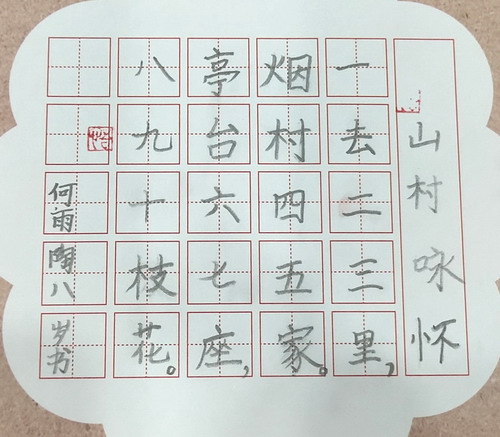 山村咏怀
一去二三里,
烟村四五家。
亭台六七座,
八九十枝花。
何雨陶八岁书